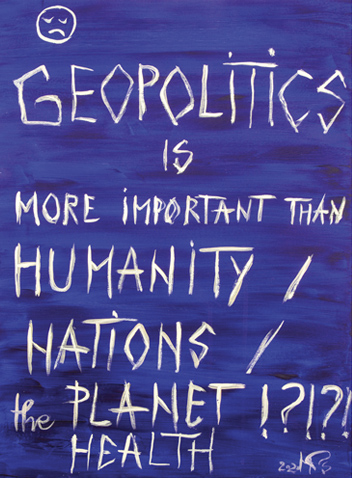 GEOPOLiTiCS
iS
MORE iMPORTANT THAN
HUMANiTY /
NATiONS /
the PLANET !?!?!
HEALTH